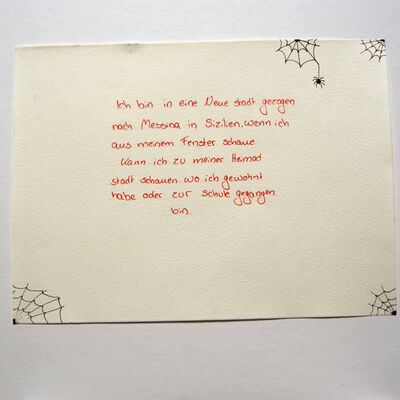 Ich bin in eine Neue stadt gezogen
nach Messina in Sizilien, wenn ich
aus meinem Fenster schaue
kann ich zu meiner Heimad
stadt schauen wo ich gewohnt
habe oder zur Schule gegangen
bin.